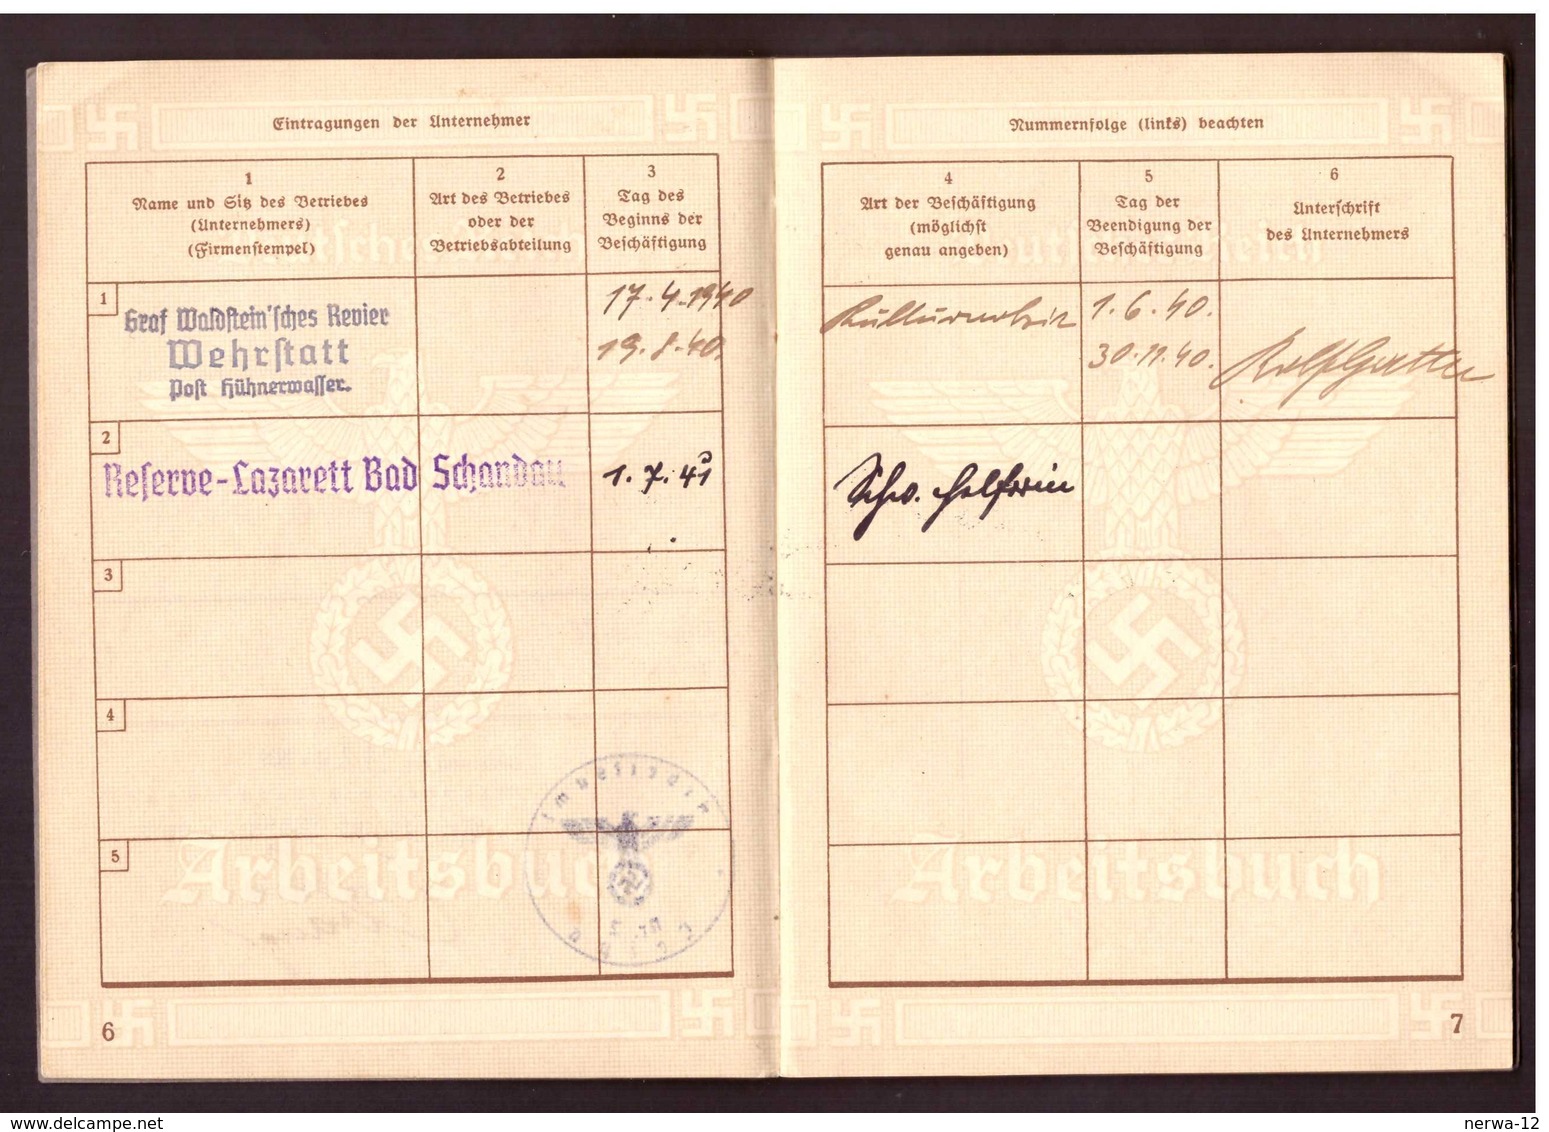 Eintragungen der Unternehmer
1
Name und Sitz des Betriebes
(Unternehmers)
(Firmenstempel)
2
Art des Betriebes
oder der
Betriebsabteilung
3
Tag des
Beginns der
Beschäftigung
1
Graf Waldstein'sches Revier
Wehrstatt
Post Hühnerwasser.
17.4.1940
19.8.40.
2
Reserve-Lazarett Bad Schandau
1.7.41
3
4
5
Arbeitsbuch
6
Nummernfolge (links) beachten
4
Art der Beschäftigung
(möglichst
genau angeben)
5
Tag der
Beendigung der
Beschäftigung
6
Unterschrift
des Unternehmers
Kulturarbeit
1.6.40.
30.11.40.
Schw. Helferin
Arbeitsbuch
7
www.delcampe.net
nerwa-12